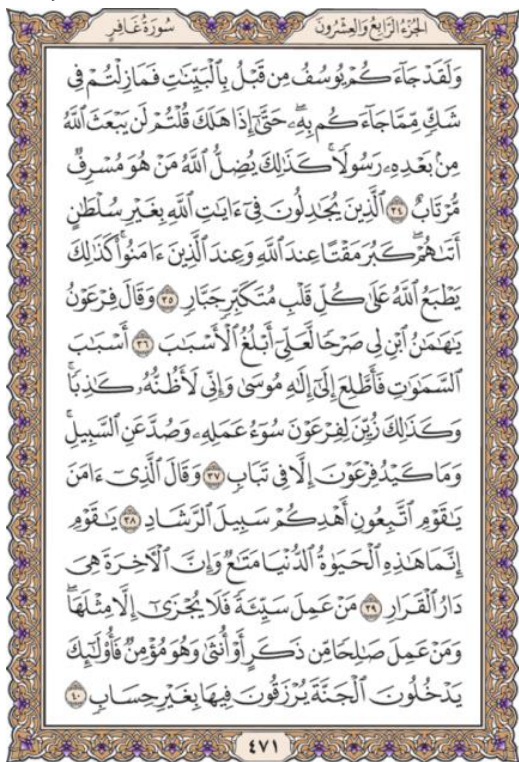 الجزء الرابع والعشرون سورة غافر
وَلَقَدْ جَآءَكُمْ يُوسُفُ مِن قَبْلُ بِٱلْبَيِّنَٰتِ فَمَا زِلْتُمْ فِى
شَكٍّ مِّمَّا جَآءَكُم بِهِۦ ۖ حَتَّىٰٓ إِذَا هَلَكَ قُلْتُمْ لَن يَبْعَثَ ٱللَّهُ
مِنۢ بَعْدِهِۦ رَسُولًا ۚ كَذَٰلِكَ يُضِلُّ ٱللَّهُ مَنْ هُوَ مُسْرِفٌ
مُّرْتَابٌ ٣٤ ٱلَّذِينَ يُجَٰدِلُونَ فِىٓ ءَايَٰتِ ٱللَّهِ بِغَيْرِ سُلْطَٰنٍ
أَتَىٰهُمْ ۖ كَبُرَ مَقْتًا عِندَ ٱللَّهِ وَعِندَ ٱلَّذِينَ ءَامَنُوا۟ ۚ كَذَٰلِكَ
يَطْبَعُ ٱللَّهُ عَلَىٰ كُلِّ قَلْبِ مُتَكَبِّرٍ جَبَّارٍ ٣٥ وَقَالَ فِرْعَوْنُ
يَٰهَٰمَٰنُ ٱبْنِ لِى صَرْحًا لَّعَلِّىٓ أَبْلُغُ ٱلْأَسْبَٰبَ ٣٦ أَسْبَٰبَ
ٱلسَّمَٰوَٰتِ فَأَطَّلِعَ إِلَىٰٓ إِلَٰهِ مُوسَىٰ وَإِنِّى لَأَظُنُّهُۥ كَٰذِبًا ۚ
وَكَذَٰلِكَ زُيِّنَ لِفِرْعَوْنَ سُوٓءُ عَمَلِهِۦ وَصُدَّ عَنِ ٱلسَّبِيلِ ۚ
وَمَا كَيْدُ فِرْعَوْنَ إِلَّا فِى تَبَابٍ ٣٧ وَقَالَ ٱلَّذِىٓ ءَامَنَ
يَٰقَوْمِ ٱتَّبِعُونِ أَهْدِكُمْ سَبِيلَ ٱلرَّشَادِ ٣٨ يَٰقَوْمِ
إِنَّمَا هَٰذِهِ ٱلْحَيَوٰةُ ٱلدُّنْيَا مَتَٰعٌ وَإِنَّ ٱلْءَاخِرَةَ هِىَ
دَارُ ٱلْقَرَارِ ٣٩ مَنْ عَمِلَ سَيِّئَةً فَلَا يُجْزَىٰٓ إِلَّا مِثْلَهَا ۖ
وَمَنْ عَمِلَ صَٰلِحًا مِّن ذَكَرٍ أَوْ أُنثَىٰ وَهُوَ مُؤْمِنٌ فَأُو۟لَٰٓئِكَ
يَدْخُلُونَ ٱلْجَنَّةَ يُرْزَقُونَ فِيهَا بِغَيْرِ حِسَابٍ ٤٠
٤٧١